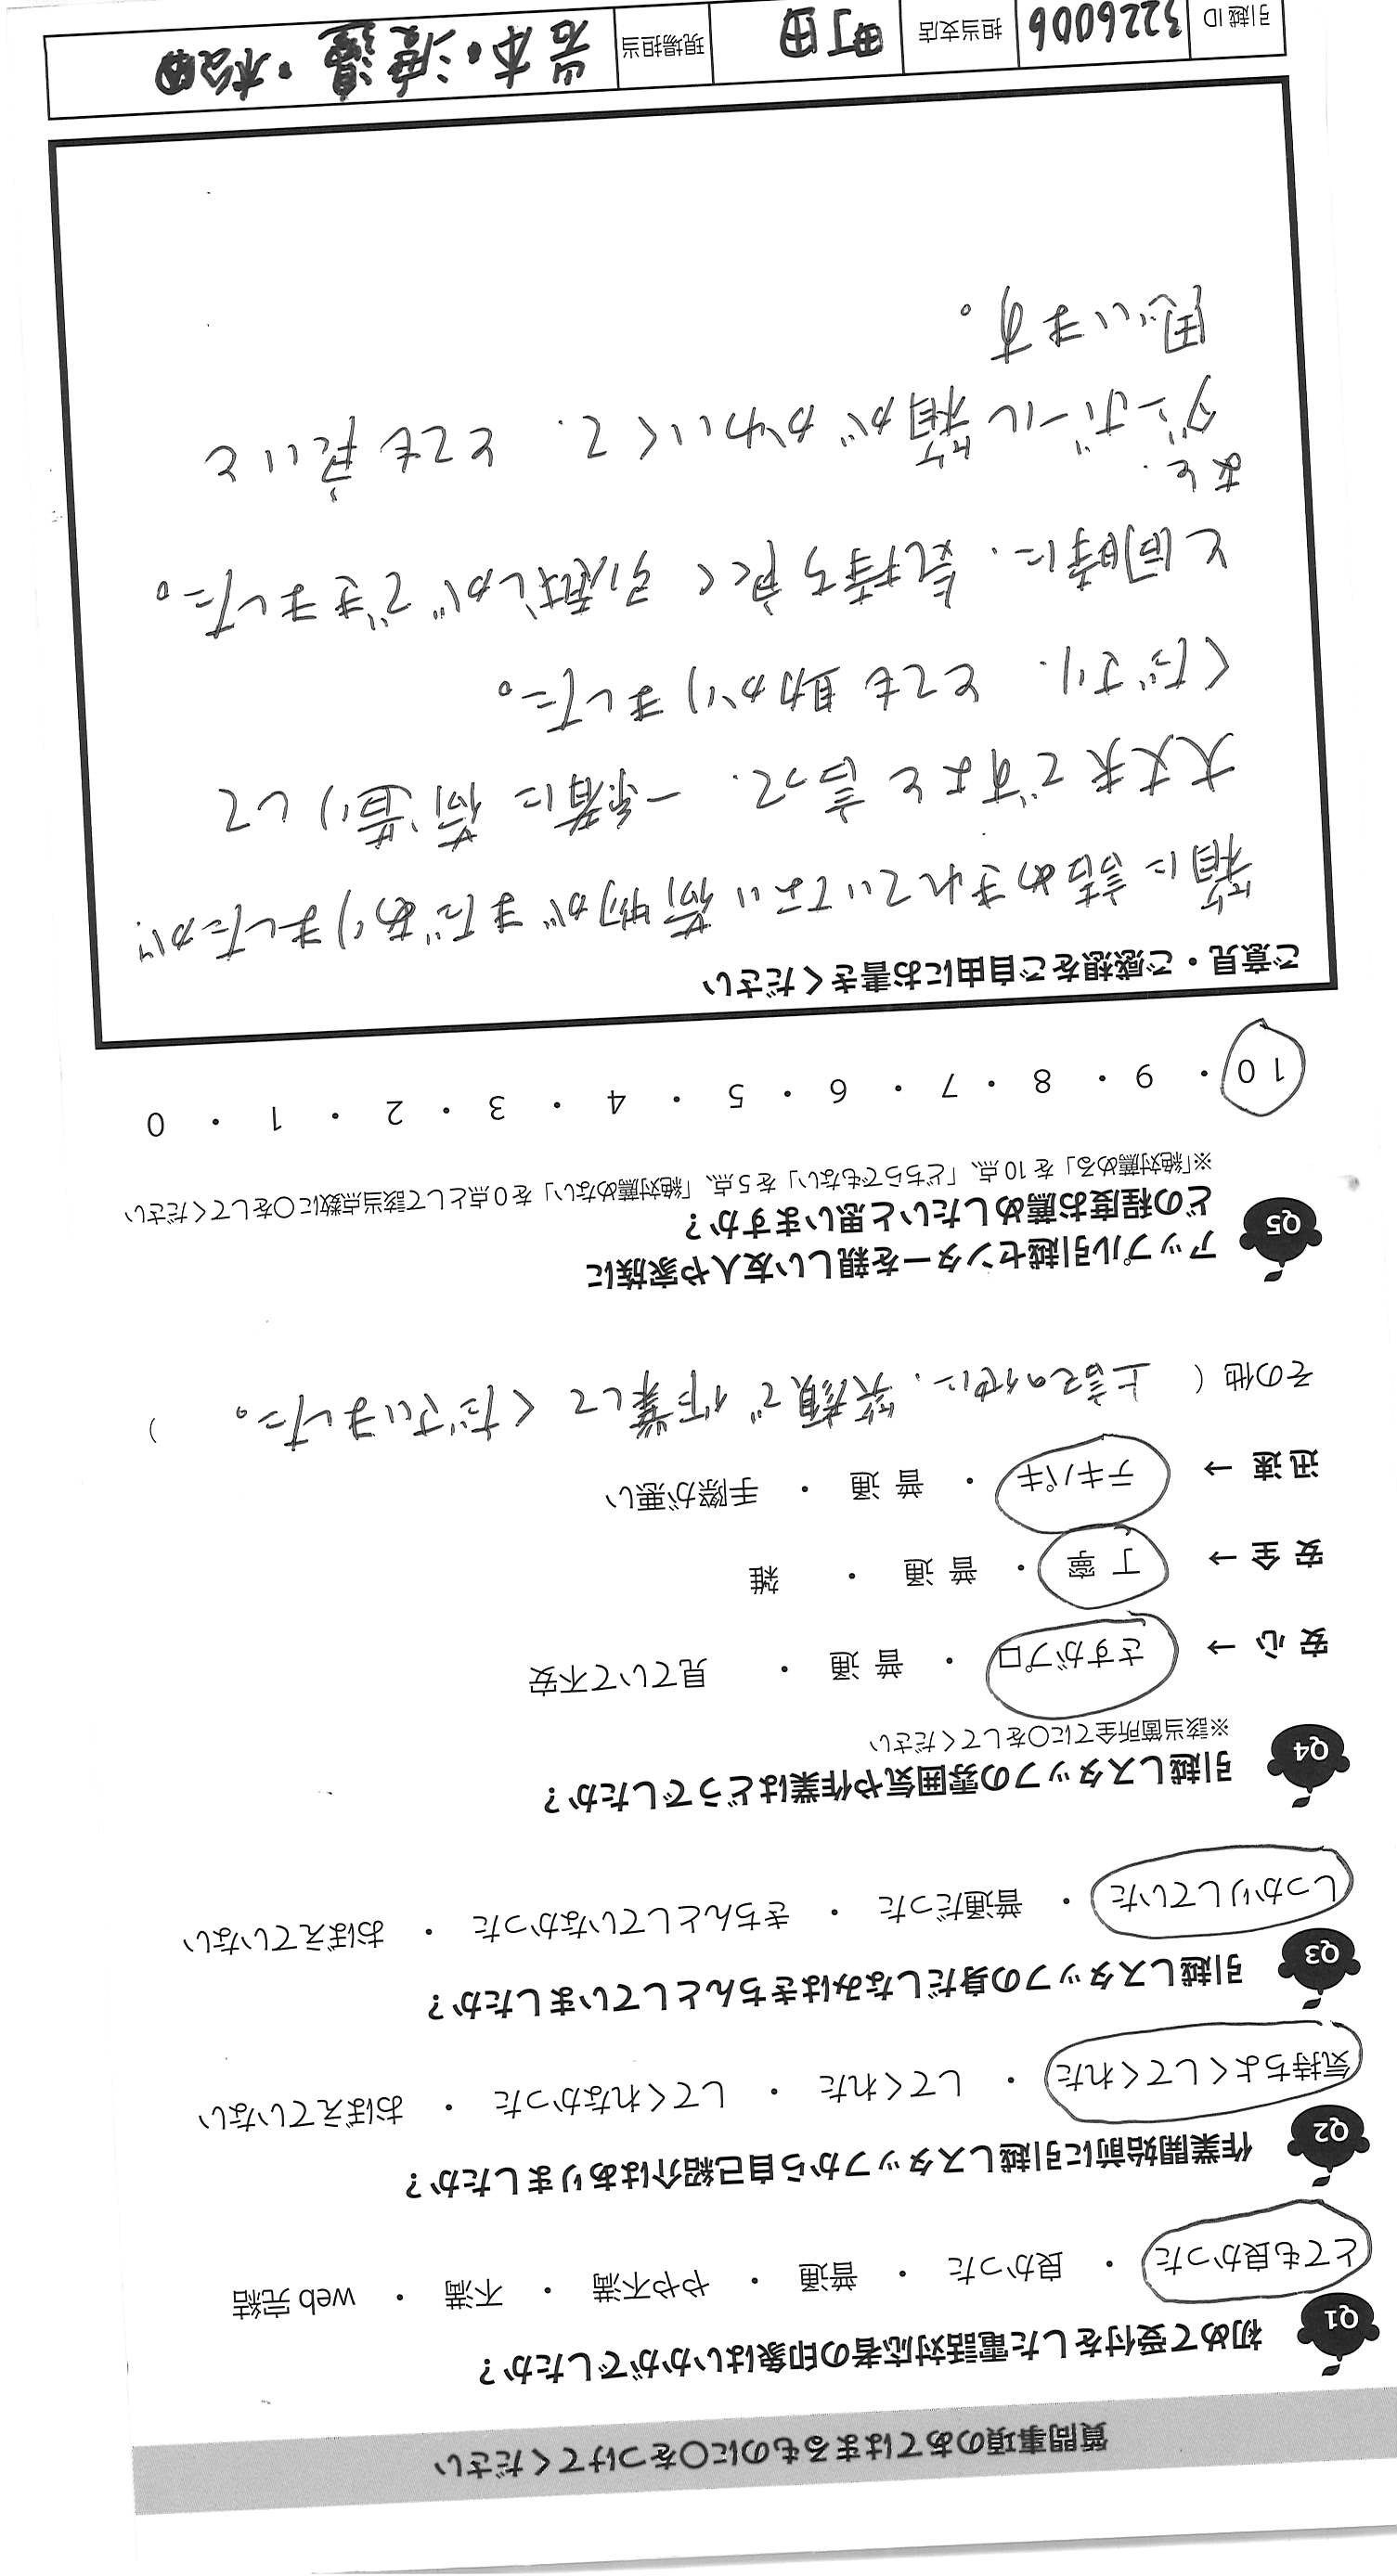 質問事項のあてはまるものに○をつけてください
Q1 初めて受付をした電話対応者の印象はいかがでしたか？
とても良かった ・ 良かった ・ 普通 ・ やや不満 ・ 不満 ・ web 完結
Q2 作業開始前に引越しスタッフから自己紹介はありましたか？
気持ちよくしてくれた ・ してくれた ・ してくれなかった ・ おぼえていない
Q3 引越しスタッフの身だしなみはきちんとしていましたか？
しっかりしていた ・ 普通だった ・ きちんとしていなかった ・ おぼえていない
Q4 引越しスタッフの雰囲気や作業はどうでしたか？
※該当箇所全てに○をしてください
安心 → さすがプロ ・ 普通 ・ 見ていて不安
安全 → 丁寧 ・ 普通 ・ 雑
迅速 → テキパキ ・ 普通 ・ 手際が悪い
その他（ 上記の他に、笑顔で作業してくださいました。 ）
Q5 アップル引越センターを親しい友人や家族に
どの程度お薦めしたいと思いますか？
※「絶対薦める」を 10 点、「どちらでもない」を 5 点、「絶対薦めない」を 0 点として該当点数に○をしてください
10 ・ 9 ・ 8 ・ 7 ・ 6 ・ 5 ・ 4 ・ 3 ・ 2 ・ 1 ・ 0
ご意見・ご感想をご自由にお書きください
箱に詰めきれていない荷物がまだありましたが、
大丈夫ですよと言って、一緒に荷造りして
くださり、とても助かりました。
と同時に、気持ち良く引越しができました。
あと、
ダンボール箱がかわいくて、とても良いと
思います。
引越 ID 3226006 担当支店 町田 現場担当 岩本・渡邊・松田